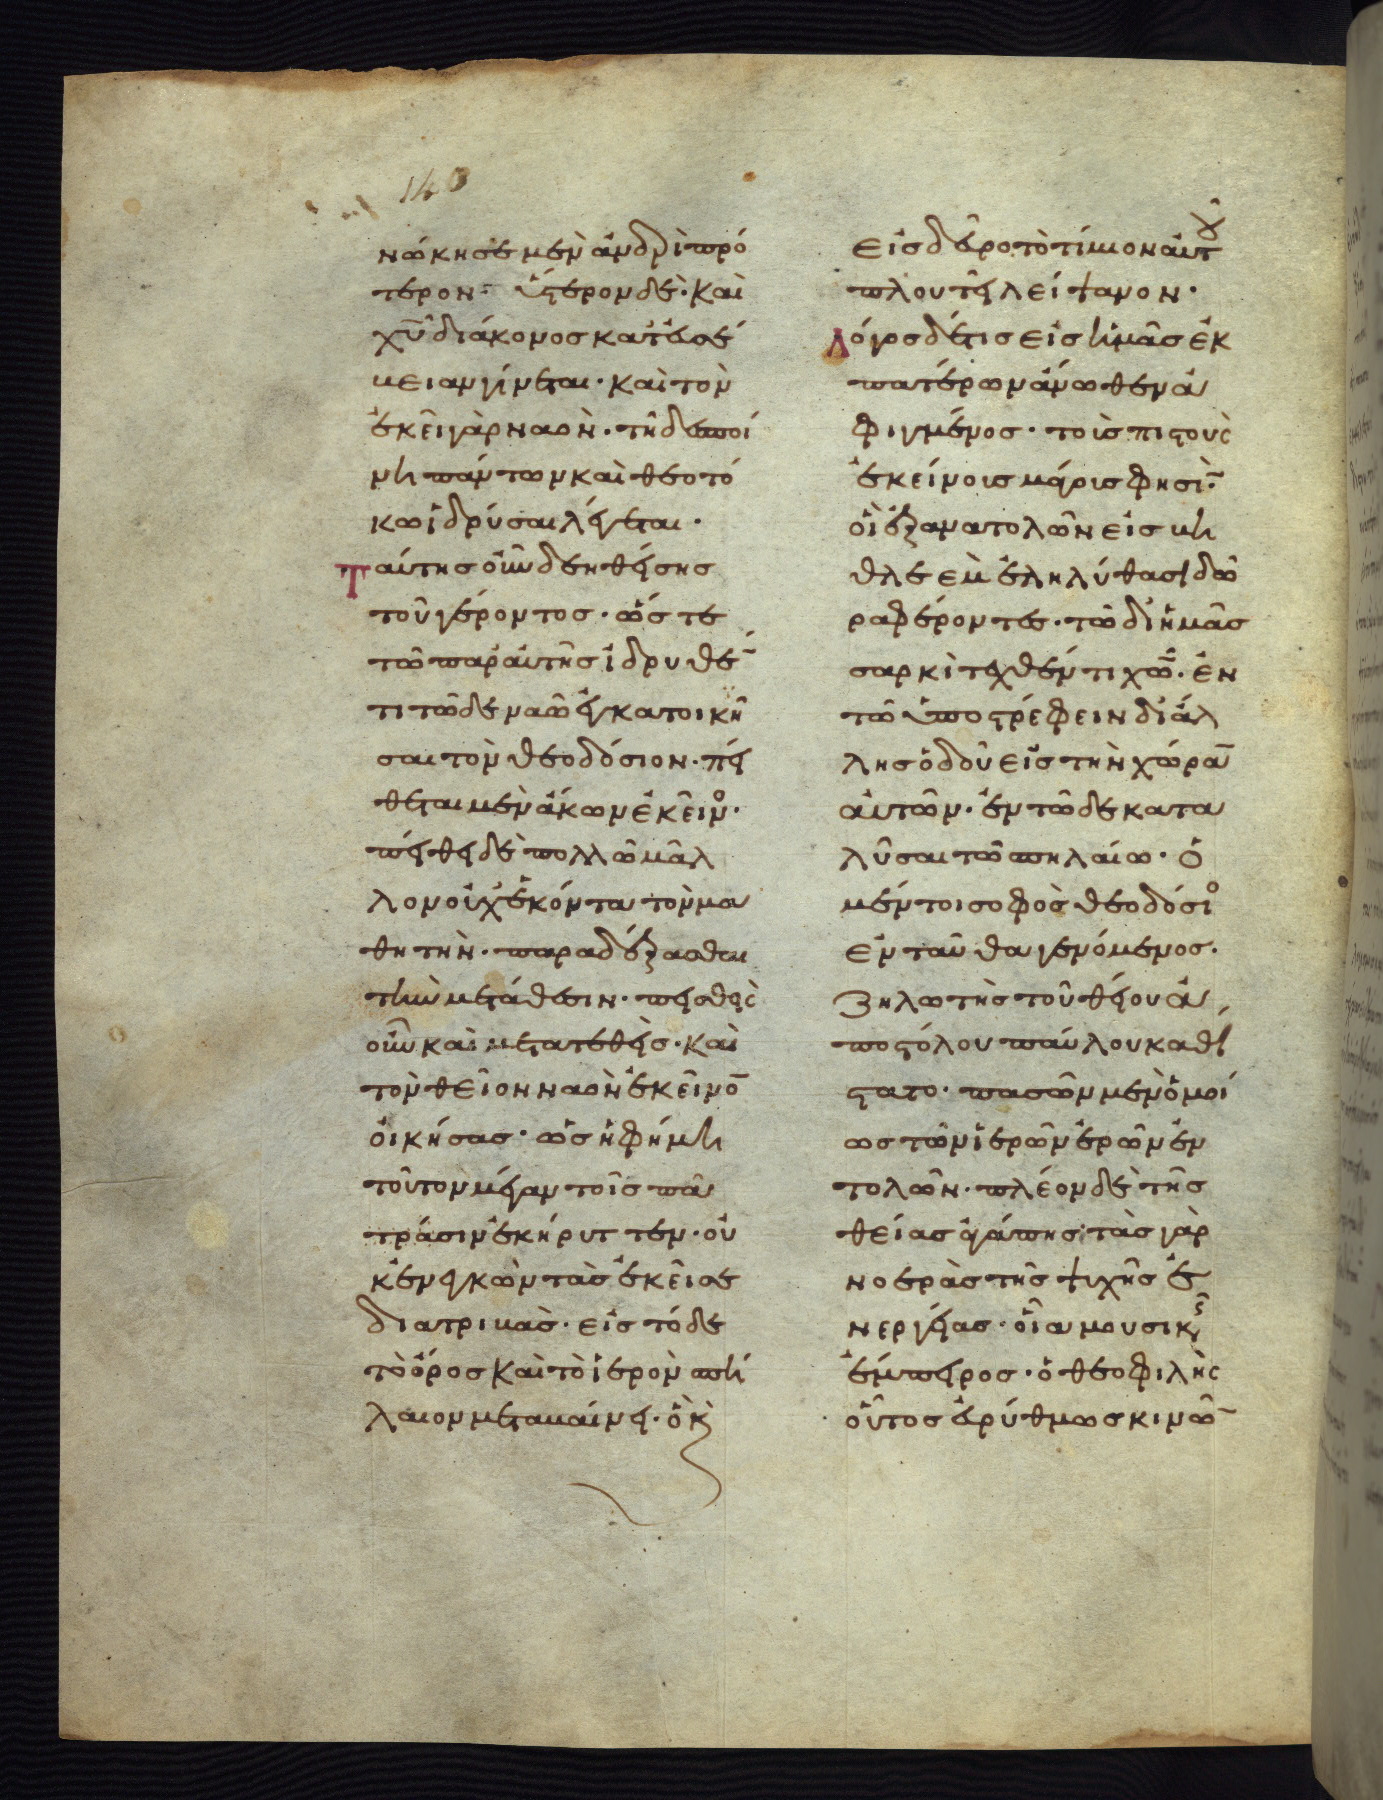 140
νώκησε μὲν ἀνδρὶ πρό
τερον· ὕστερον δὲ· καὶ
χῦ διάκονος κατ' εὐσέ
βειαν γίνεται· καὶ τὸν
ἐκεῖ γὰρ ναὸν· τῇ δεσποί
νη πάντων καὶ θεοτό
κω ἱδρύσαι λέγεται·
Ταύτης οὖν δεηθείσης
τοῦ γέροντος· ὥστε
τῶ παρ' αὐτῆς ἱδρυθέ
τι τῶδε ναῶ ἐγκατοικῆ
σαι τὸν θεοδόσιον· πεί
θεται μὲν ἄκων ἐκεῖνο·
πείθει δὲ πολλῶ μᾶλ
λον οὐχ' ἑκόντα τὸν μα
θητὴν· παραδέξασθαι
τὴν μετάθεσιν· πεισθεὶς
οὖν καὶ μετατεθεὶς· καὶ
τὸν θεῖον ναὸν ἐκεῖνο
οἰκήσας· ὡς ἡ φήμη
τοῦτον μέγαν τοῖς πᾶ
τράσιν ἐκήρυττεν· οὐ
κ' ἐνεγκὼν τὰς ἐκεῖσε
διατριβὰς· εἰς τόδε
τὸ ὄρος καὶ τὸ ἱερὸν σπή
λαιον μεταβαίνει· ὃ κ
εἰς δεῦρο τὸ τίμιον αὐτοῦ
πλουτεῖ λείψανον·
Λόγος δέ τις εἰς ἡμᾶς ἐκ
πατέρων ἄνωθεν ἀ
φιγμένος· τοὺς πιστοὺς
ἐκείνοις μάγοις φησὶ·
οἳ ἐξ ἀνατολῶν εἰς βη
θλεὲμ ἐληλύθασι δῶ
ρα φέροντες· τῶ δι' ἡμᾶς
σαρκὶ τεχθέντι χῶ· ἐν
τῶ ὑποστρέφειν δι' ἄλ
λης ὁδοῦ εἰς τὴν χώρα
αὐτῶν· ἐν τῶδε κατα
λῦσαι τῶ σπηλαίω· ὁ
μέντοι σοφὸς θεοδόσιο
ἐνταῦθα γενόμενος·
ζηλωτὴς τοῦ θείου ἀ
ποστόλου παύλου καθί
στατο· πασῶν μὲν ὁμοί
ως τῶν ἱερῶν ἐρῶν ἐν
τολῶν· πλέον δὲ τῆς
θείας ἀγάπης· τὰς γὰρ
νοερὰς τῆς ψυχῆς ἐ
νεργείας· οἷα μουσικῆς
ἔμπειρος· ὁ θεοφιλὴς
οὗτος εὐρύθμως κινῶ